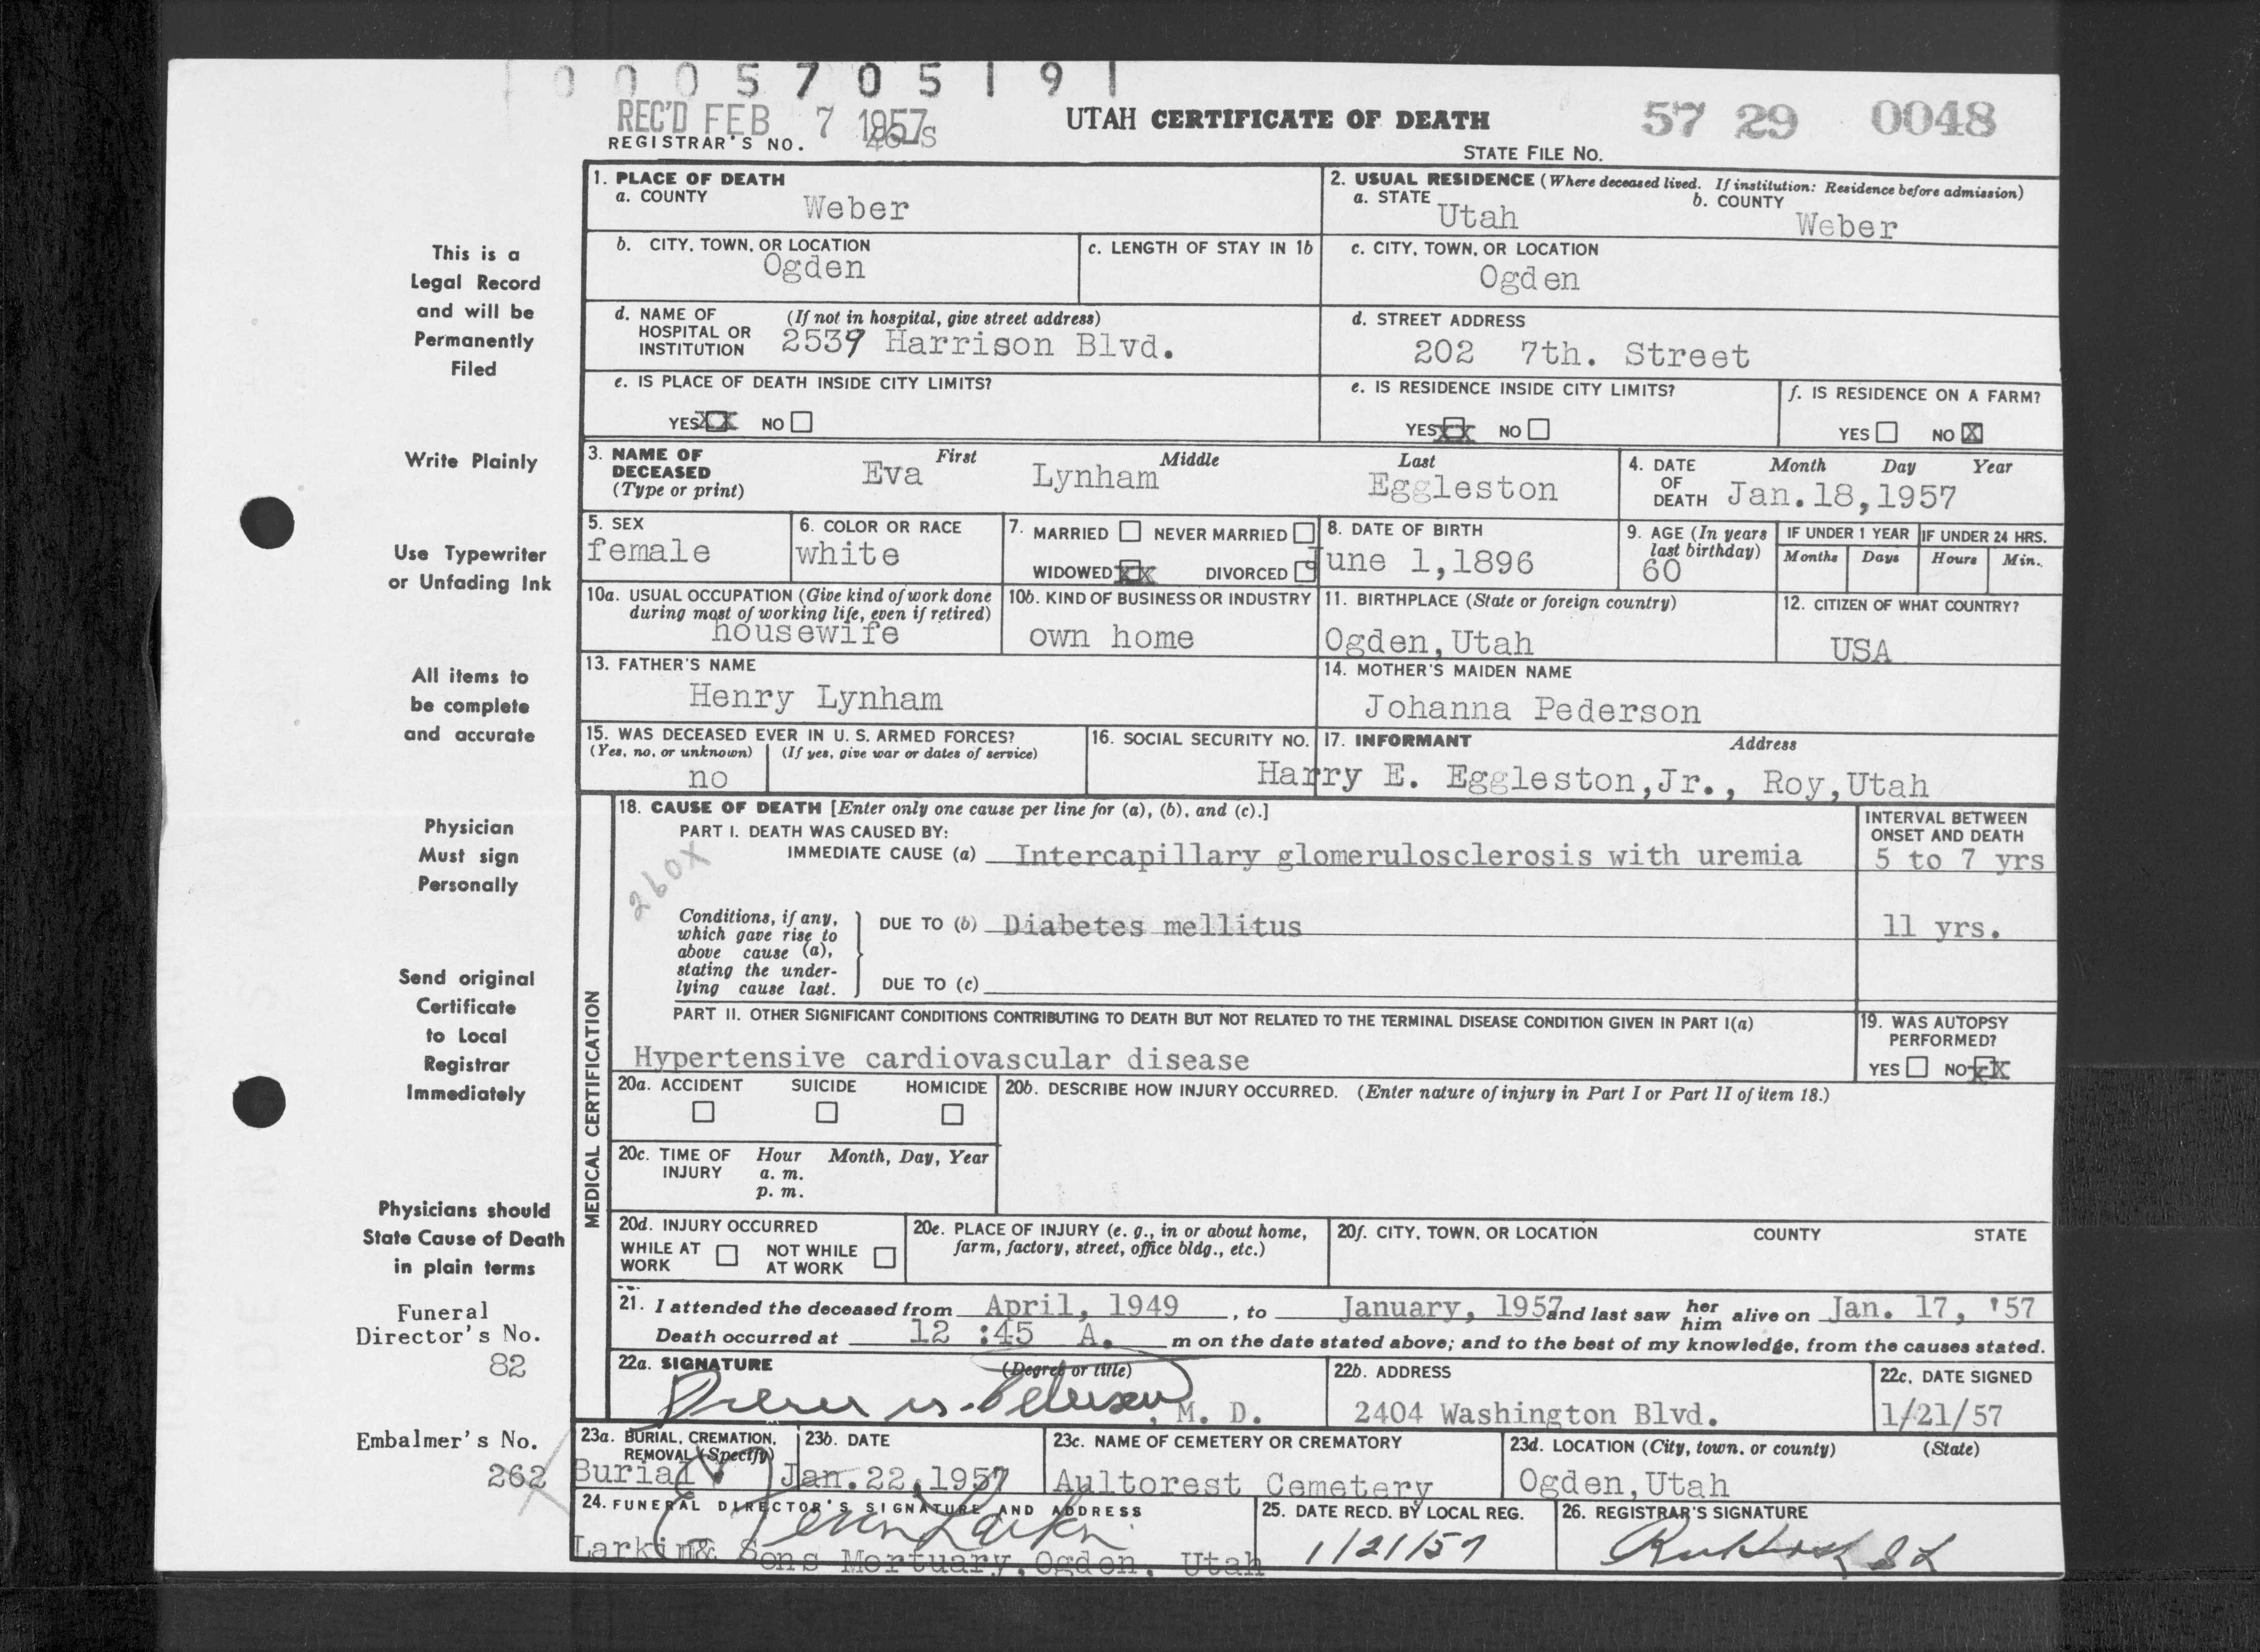 0005705191
REC'D FEB 7 1957
REGISTRAR'S NO.
UTAH CERTIFICATE OF DEATH
57 29 0048
STATE FILE NO.
1. PLACE OF DEATH
a. COUNTY
Weber
2. USUAL RESIDENCE (Where deceased lived. If institution: Residence before admission)
a. STATE
Utah
b. COUNTY
Weber
b. CITY, TOWN, OR LOCATION
Ogden
c. LENGTH OF STAY IN 1b
c. CITY, TOWN, OR LOCATION
Ogden
d. NAME OF HOSPITAL OR INSTITUTION
(If not in hospital, give street address)
2539 Harrison Blvd.
d. STREET ADDRESS
202 7th. Street
e. IS PLACE OF DEATH INSIDE CITY LIMITS?
YES XX NO
e. IS RESIDENCE INSIDE CITY LIMITS?
YES XX NO
f. IS RESIDENCE ON A FARM?
YES NO X
3. NAME OF DECEASED
(Type or print)
First Middle Last
Eva Lynham Eggleston
4. DATE OF DEATH
Month Day Year
Jan.18,1957
5. SEX
female
6. COLOR OR RACE
white
7. MARRIED NEVER MARRIED
WIDOWED XX DIVORCED
8. DATE OF BIRTH
June 1,1896
9. AGE (In years last birthday)
60
IF UNDER 1 YEAR
Months Days
IF UNDER 24 HRS.
Hours Min.
10a. USUAL OCCUPATION (Give kind of work done during most of working life, even if retired)
housewife
10b. KIND OF BUSINESS OR INDUSTRY
own home
11. BIRTHPLACE (State or foreign country)
Ogden,Utah
12. CITIZEN OF WHAT COUNTRY?
USA
13. FATHER'S NAME
Henry Lynham
14. MOTHER'S MAIDEN NAME
Johanna Pederson
15. WAS DECEASED EVER IN U. S. ARMED FORCES?
(Yes, no, or unknown) (If yes, give war or dates of service)
no
16. SOCIAL SECURITY NO.
17. INFORMANT Address
Harry E. Eggleston,Jr., Roy,Utah
MEDICAL CERTIFICATION
18. CAUSE OF DEATH [Enter only one cause per line for (a), (b), and (c).]
PART I. DEATH WAS CAUSED BY:
IMMEDIATE CAUSE (a) Intercapillary glomerulosclerosis with uremia
INTERVAL BETWEEN ONSET AND DEATH
5 to 7 yrs
260X
Conditions, if any, which gave rise to above cause (a), stating the underlying cause last.
DUE TO (b) Diabetes mellitus
11 yrs.
DUE TO (c)
PART II. OTHER SIGNIFICANT CONDITIONS CONTRIBUTING TO DEATH BUT NOT RELATED TO THE TERMINAL DISEASE CONDITION GIVEN IN PART I(a)
Hypertensive cardiovascular disease
19. WAS AUTOPSY PERFORMED?
YES NO XX
20a. ACCIDENT SUICIDE HOMICIDE
20b. DESCRIBE HOW INJURY OCCURRED. (Enter nature of injury in Part I or Part II of item 18.)
20c. TIME OF INJURY
Hour Month, Day, Year
a. m.
p. m.
20d. INJURY OCCURRED
WHILE AT WORK NOT WHILE AT WORK
20e. PLACE OF INJURY (e. g., in or about home, farm, factory, street, office bldg., etc.)
20f. CITY, TOWN, OR LOCATION COUNTY STATE
21. I attended the deceased from April, 1949, to January, 1957 and last saw her him alive on Jan. 17, '57
Death occurred at 12 :45 A. m on the date stated above; and to the best of my knowledge, from the causes stated.
22a. SIGNATURE (Degree or title)
, M. D.
22b. ADDRESS
2404 Washington Blvd.
22c. DATE SIGNED
1/21/57
23a. BURIAL, CREMATION, REMOVAL (Specify)
Burial
23b. DATE
Jan.22,1957
23c. NAME OF CEMETERY OR CREMATORY
Aultorest Cemetery
23d. LOCATION (City, town, or county) (State)
Ogden,Utah
24. FUNERAL DIRECTOR'S SIGNATURE AND ADDRESS
Larkin& Sons Mortuary,Ogden, Utah
25. DATE RECD. BY LOCAL REG.
1/21/57
26. REGISTRAR'S SIGNATURE
This is a
Legal Record
and will be
Permanently
Filed
Write Plainly
Use Typewriter
or Unfading Ink
All items to
be complete
and accurate
Physician
Must sign
Personally
Send original
Certificate
to Local
Registrar
Immediately
Physicians should
State Cause of Death
in plain terms
Funeral
Director's No.
82
Embalmer's No.
262